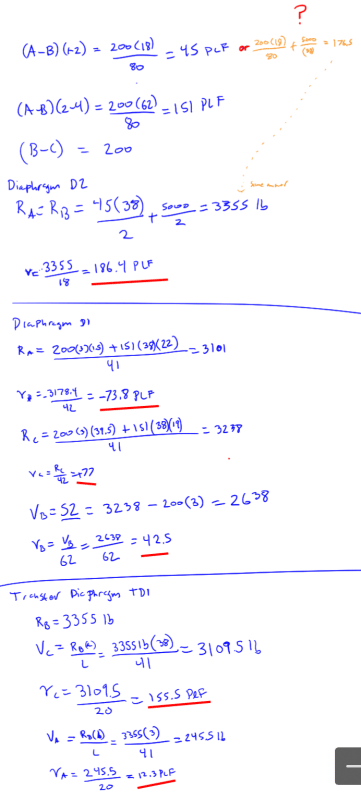 ?
(A-B)(1-2) = 200(18)/80 = 45 PLF or 200(18)/80 + 5000/(38) = 176.5
(A-B)(2-4) = 200(62)/80 = 151 PLF
(B-C) = 200
Diaphragm D2
RA = RB = 45(38)/2 + 5000/2 = 3355 lb
v = 3355/18 = 186.4 PLF
Diaphragm D1
RA = 200(3)(1.5) + 151(38)(22)/41 = 3101
vA = -3178.4/42 = -73.8 PLF
RC = 200(3)(39.5) + 151(38)(19)/41 = 3238
vC = RC/42 = +77
VB = S2 = 3238 - 200(3) = 2638
vB = VB/62 = 2638/62 = 42.5
Transfer Diaphragm TD1
RB = 3355 lb
VC = RB(a)/L = 3355lb(38)/41 = 3109.5 lb
vC = 3109.5/20 = 155.5 PLF
VA = RB(b)/L = 3355(3)/41 = 245.5 lb
vA = 245.5/20 = 12.3 PLF